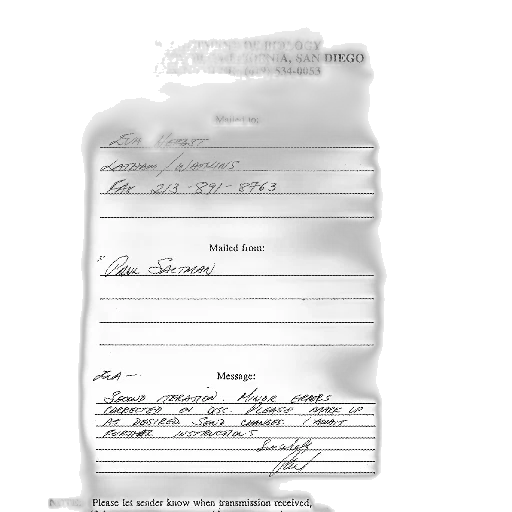 OF BIOLOGY
SAN DIEGO
534-0053
Mailed to:
LATHAM / WATKINS
FAX 213-891-8763
Mailed from:
PAUL SALTMAN
EVA - Message:
SECOND ITERATION. MINOR ERRORS
CORRECTED ON DISC. PLEASE MARK UP
AS DESIRED. SEND CHANGES. I AWAIT
FURTHER INSTRUCTIONS
Paul
Please let sender know when transmission received,